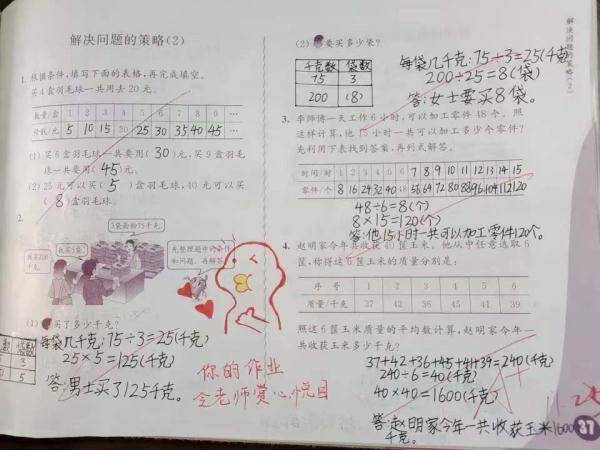 解决问题的策略(2)
1. 根据条件，填写下面的表格，再完成填空。
买4盒羽毛球一共用去20元。
数量/盒 1 2 3 4 5 6 7 8 9 …
价钱/元 5 10 15 20 25 30 35 40 45 …
(1) 买6盒羽毛球一共要用( 30 )元，买9盒羽毛
球一共要用( 45 )元。
(2) 25元可以买( 5 )盒羽毛球，40元可以买
( 8 )盒羽毛球。
2.
3袋面粉75千克。
我买5袋。
我买200
千克。
先整理题中的条件
和问题，再解答。
(1) 买了多少千克？
每袋几千克：75÷3=25(千克)
25×5=125(千克)
答：男士买了125千克。
数
3
5
你的作业
令老师赏心悦目
(2) 要买多少袋？
千克数 袋数
75 3
200 (8)
每袋几千克：75÷3=25(千克)
200÷25=8(袋)
答：女士要买8袋。
3. 李师傅一天工作6小时，可以加工零件48个。照
这样计算，他15小时一共可以加工多少个零件？
先利用下表找到答案，再列式解答。
时间/时 1 2 3 4 5 6 7 8 9 10 11 12 13 14 15
零件/个 8 16 24 32 40 48 56 64 72 80 88 96 104 112 120
48÷6=8(个)
8×15=120(个)
答：他15小时一共可以加工零件120个。
4. 赵明家今年共收获40筐玉米。他从中任意选取6
筐，称得这6筐玉米的质量分别是：
序号 1 2 3 4 5 6
质量/千克 37 42 36 45 41 39
照这6筐玉米质量的平均数计算，赵明家今年一
共收获玉米多少千克？
37+42+36+45+41+39=240(千克)
240÷6=40(千克)
40×40=1600(千克)
答：赵明家今年一共收获玉米1600
千克。
A+
解决问题的策略(2)
37